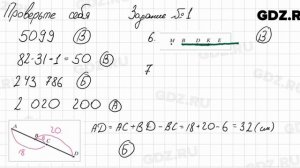 Проверьте себя
Задание №1
GDZ.RU
5099 (В)
82-31+1=50 (В)
243 786 (Б)
2 020 200 (А)
6. M B D K E (В)
7
A 20 18 8-6 C
AD=AC+BD-BC=18+20-6=32(см)
(Б)
GDZ.RU